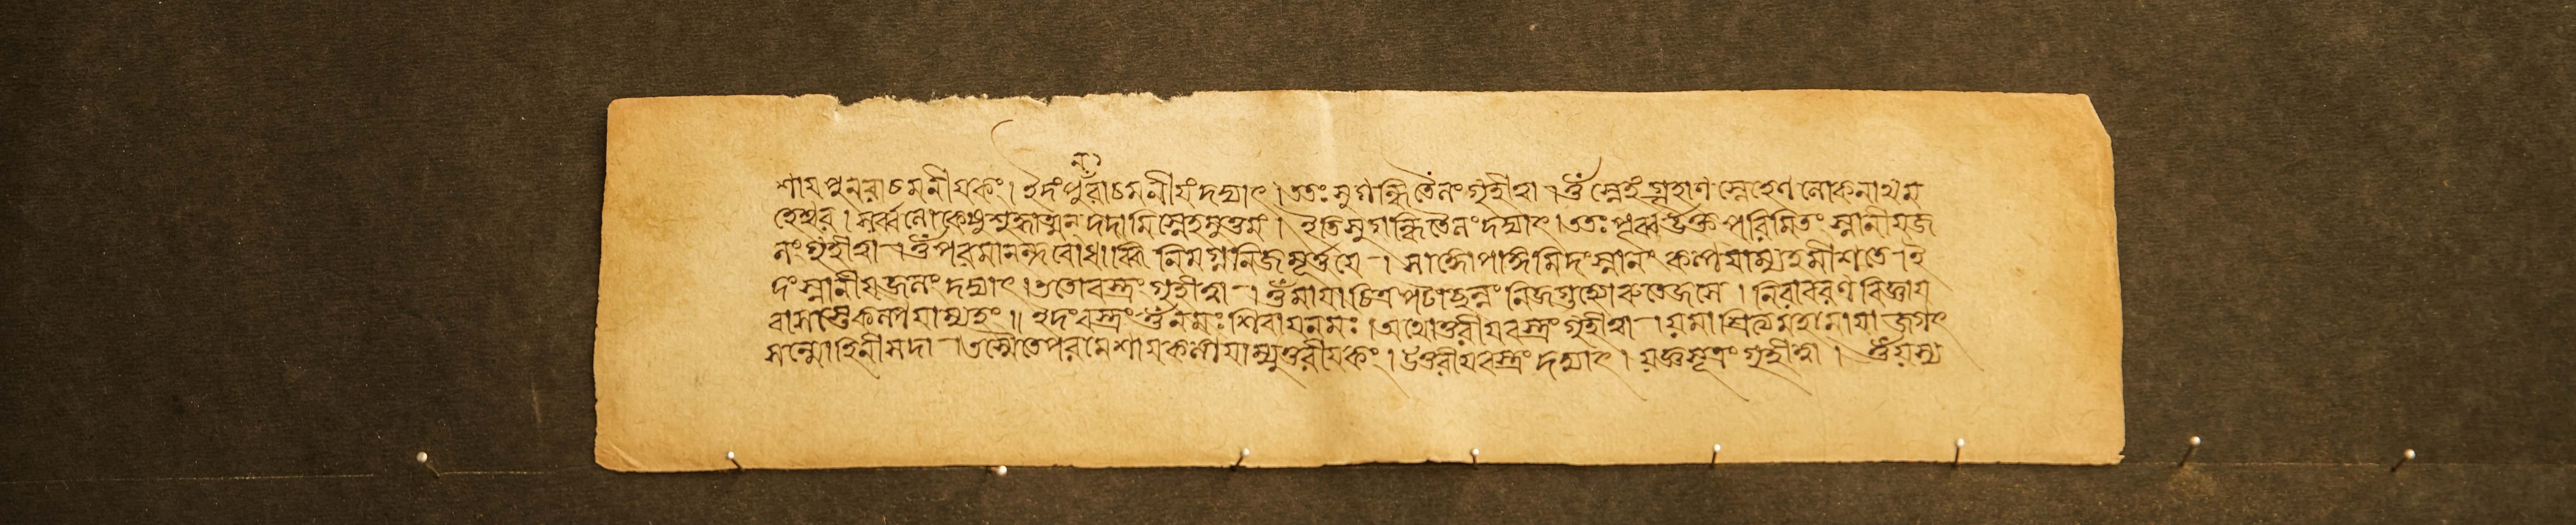 শায পুনরাচমনীযকং। ইদং পুনরাচমনীযং দদ্যাৎ। ততঃ সুগন্ধিতৈলং গৃহীত্বা। ওঁ স্নেহং গৃহাণ স্নেহেন লোকনাথ ম
হেশ্বর। সর্ব্বলোকেষু শুদ্ধাত্মন্ দদামি স্নেহমুত্তমং। ইতি সুগন্ধিতৈলং দদ্যাৎ। ততঃ পূর্ব্বোক্ত পরিমিতং স্নানীযজ
লং গৃহীত্বা। ওঁ পরমানন্দবোধাব্ধি নিমগ্ননিজমূর্ত্তযে। সাঙ্গোপাঙ্গমিদং স্নানং কল্পযাম্যহমীশতে। ই
দং স্নানীযজলং দদ্যাৎ। ততোবস্ত্রং গৃহীত্বা। ওঁ মাযাচিত্রপটাচ্ছন্ন নিজগুহ্যোরুতেজসে। নিরাবরণ বিজ্ঞায
বাসস্তে কল্পযাম্যহং॥ ইদং বস্ত্রং ওঁ নমঃ শিবায নমঃ। অথোত্তরীযবস্ত্রং গৃহীত্বা। যমাশ্রিত্য মহামাযা জগৎ
সম্মোহিনী সদা। তস্মৈ তে পরমেশায কল্পযাম্যুত্তরীযকং। উত্তরীযবস্ত্রং দদ্যাৎ। যজ্ঞসূত্রং গৃহীত্বা। ওঁ যস্য